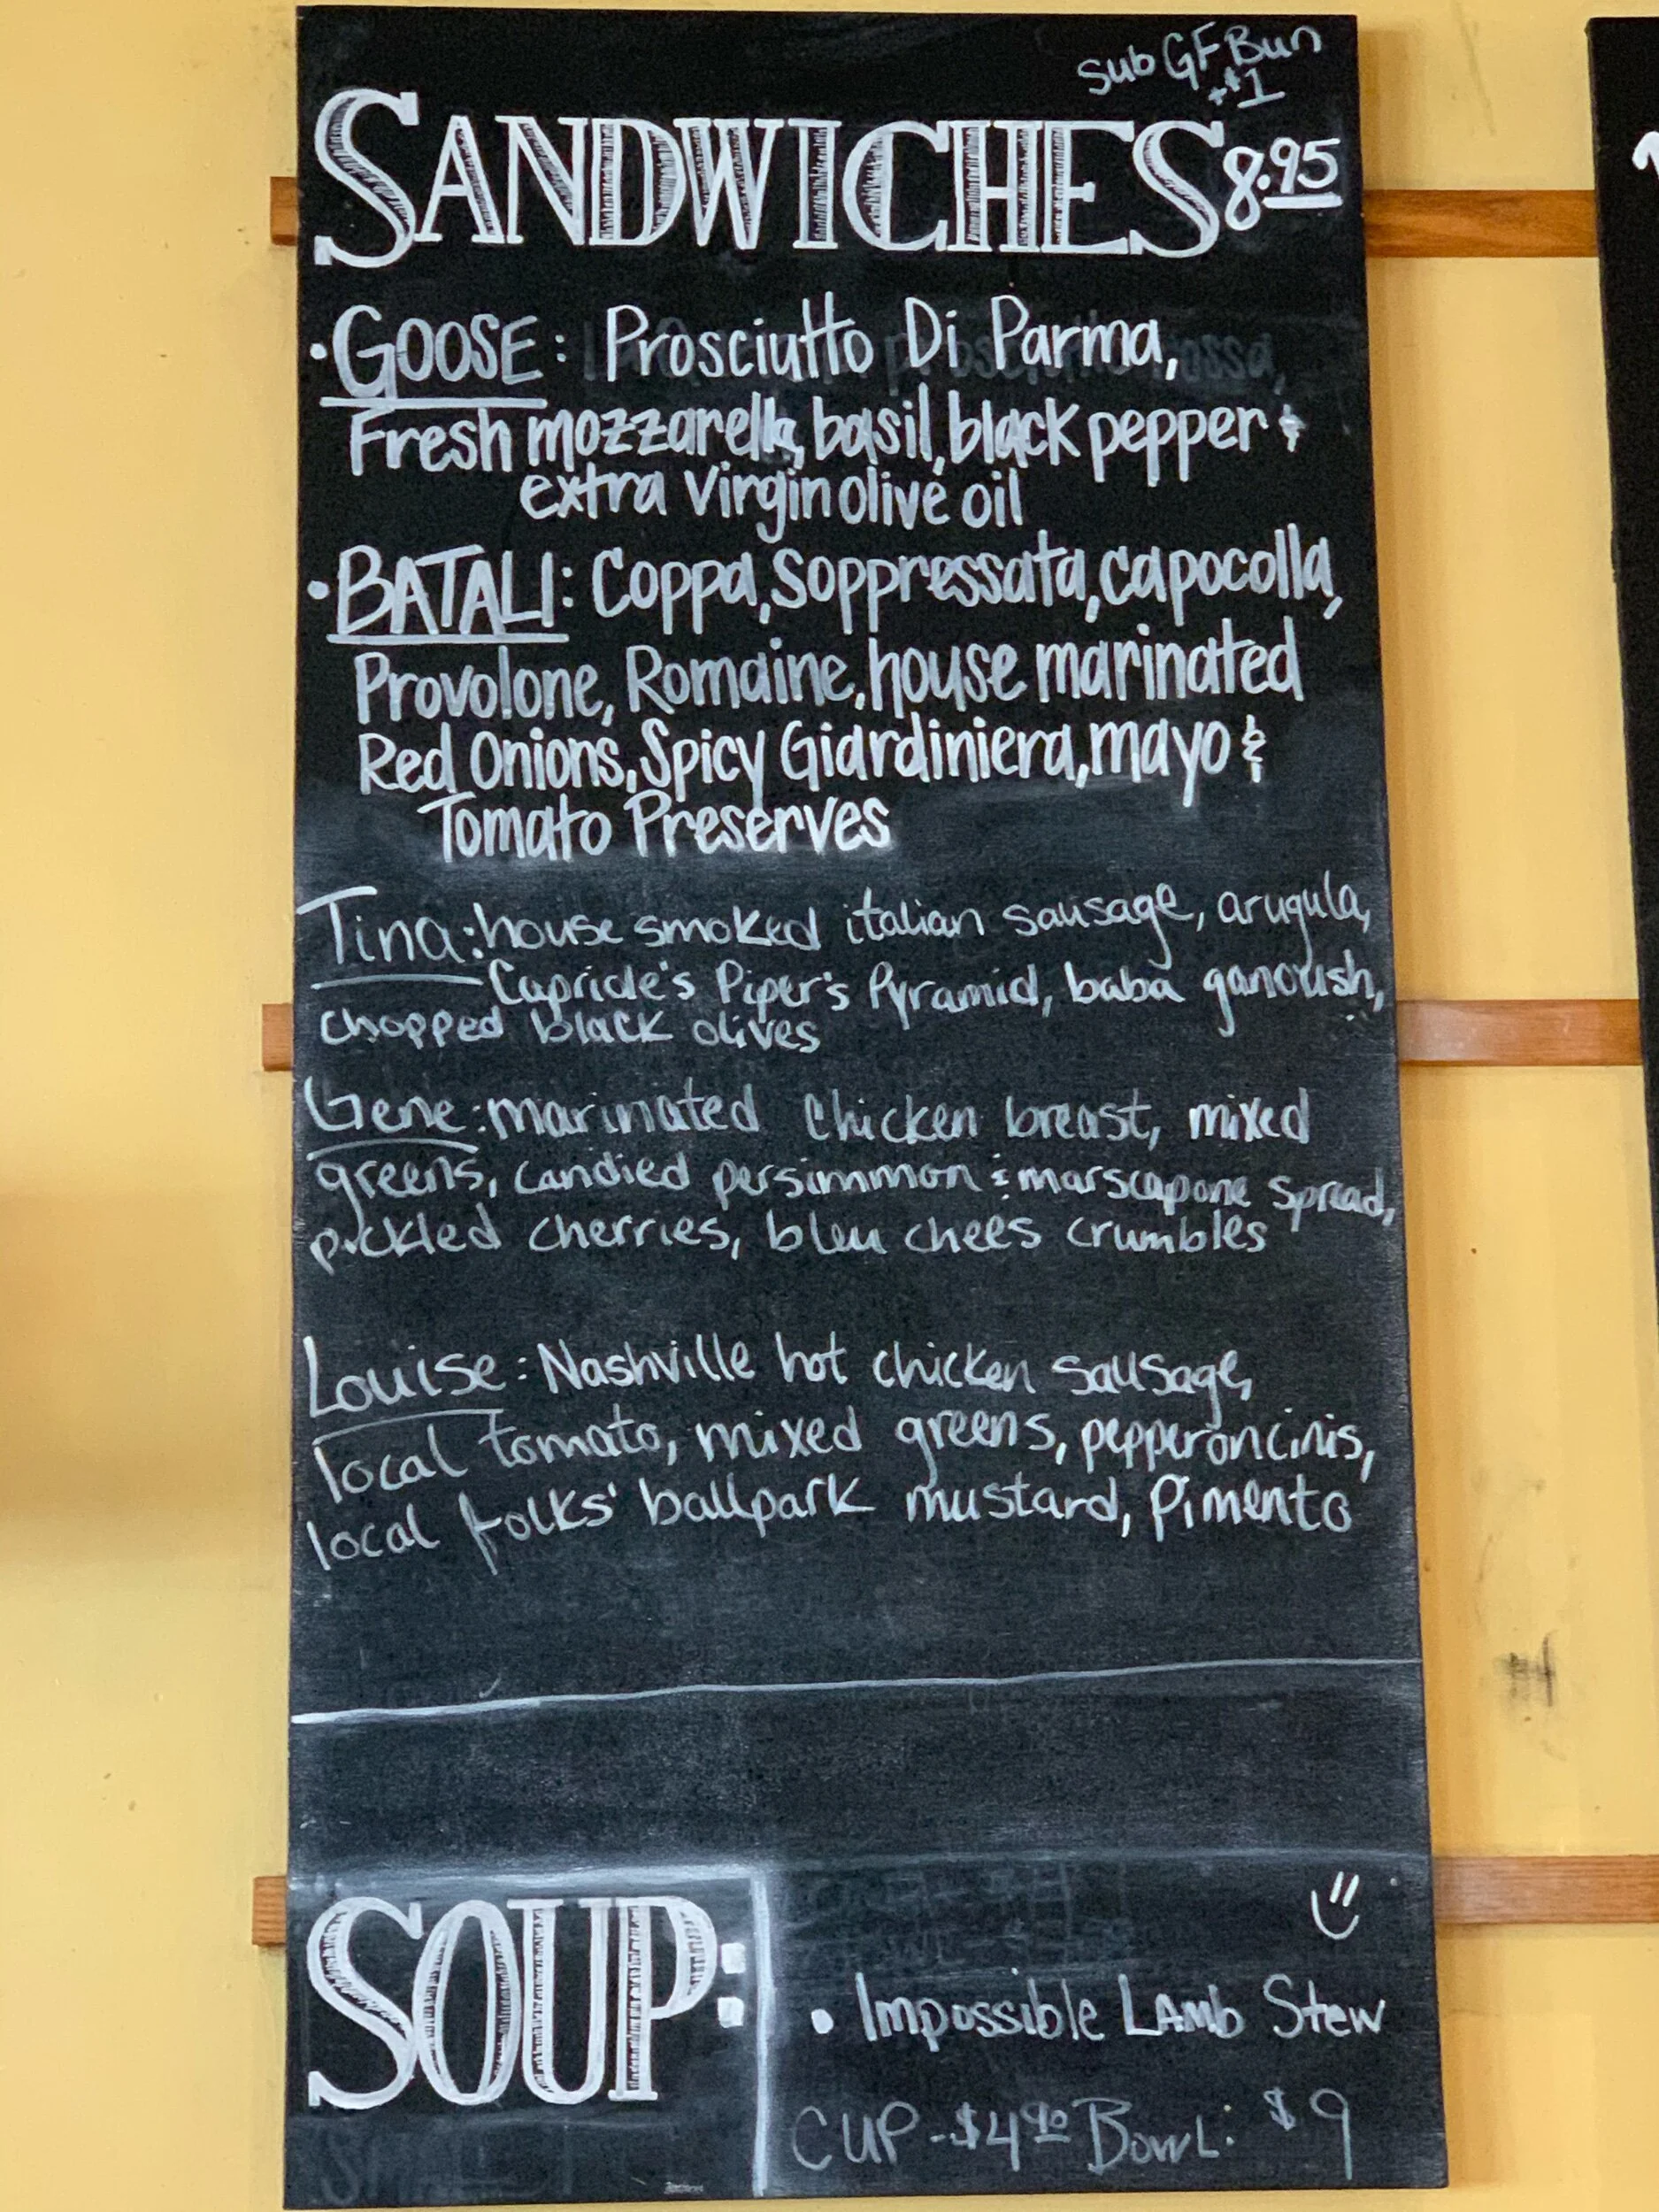 Sub GF Bun
+$1
SANDWICHES 8.95
• GOOSE: Prosciutto Di Parma,
Fresh mozzarella, basil, black pepper &
extra virgin olive oil
• BATALI: Coppa, Soppressata, capocolla,
Provolone, Romaine, house marinated
Red Onions, Spicy Giardiniera, mayo &
Tomato Preserves
Tina: house smoked italian sausage, arugula,
Capriole's Piper's Pyramid, baba ganoush,
chopped black olives
Gene: marinated chicken breast, mixed
greens, candied persimmon & marscapone spread,
pickled cherries, bleu chees crumbles
Louise: Nashville hot chicken sausage,
local tomato, mixed greens, pepperoncinis,
local folks' ballpark mustard, Pimento
SOUP:
• Impossible LAMb Stew
CUP - $4.90 BOWL: $9